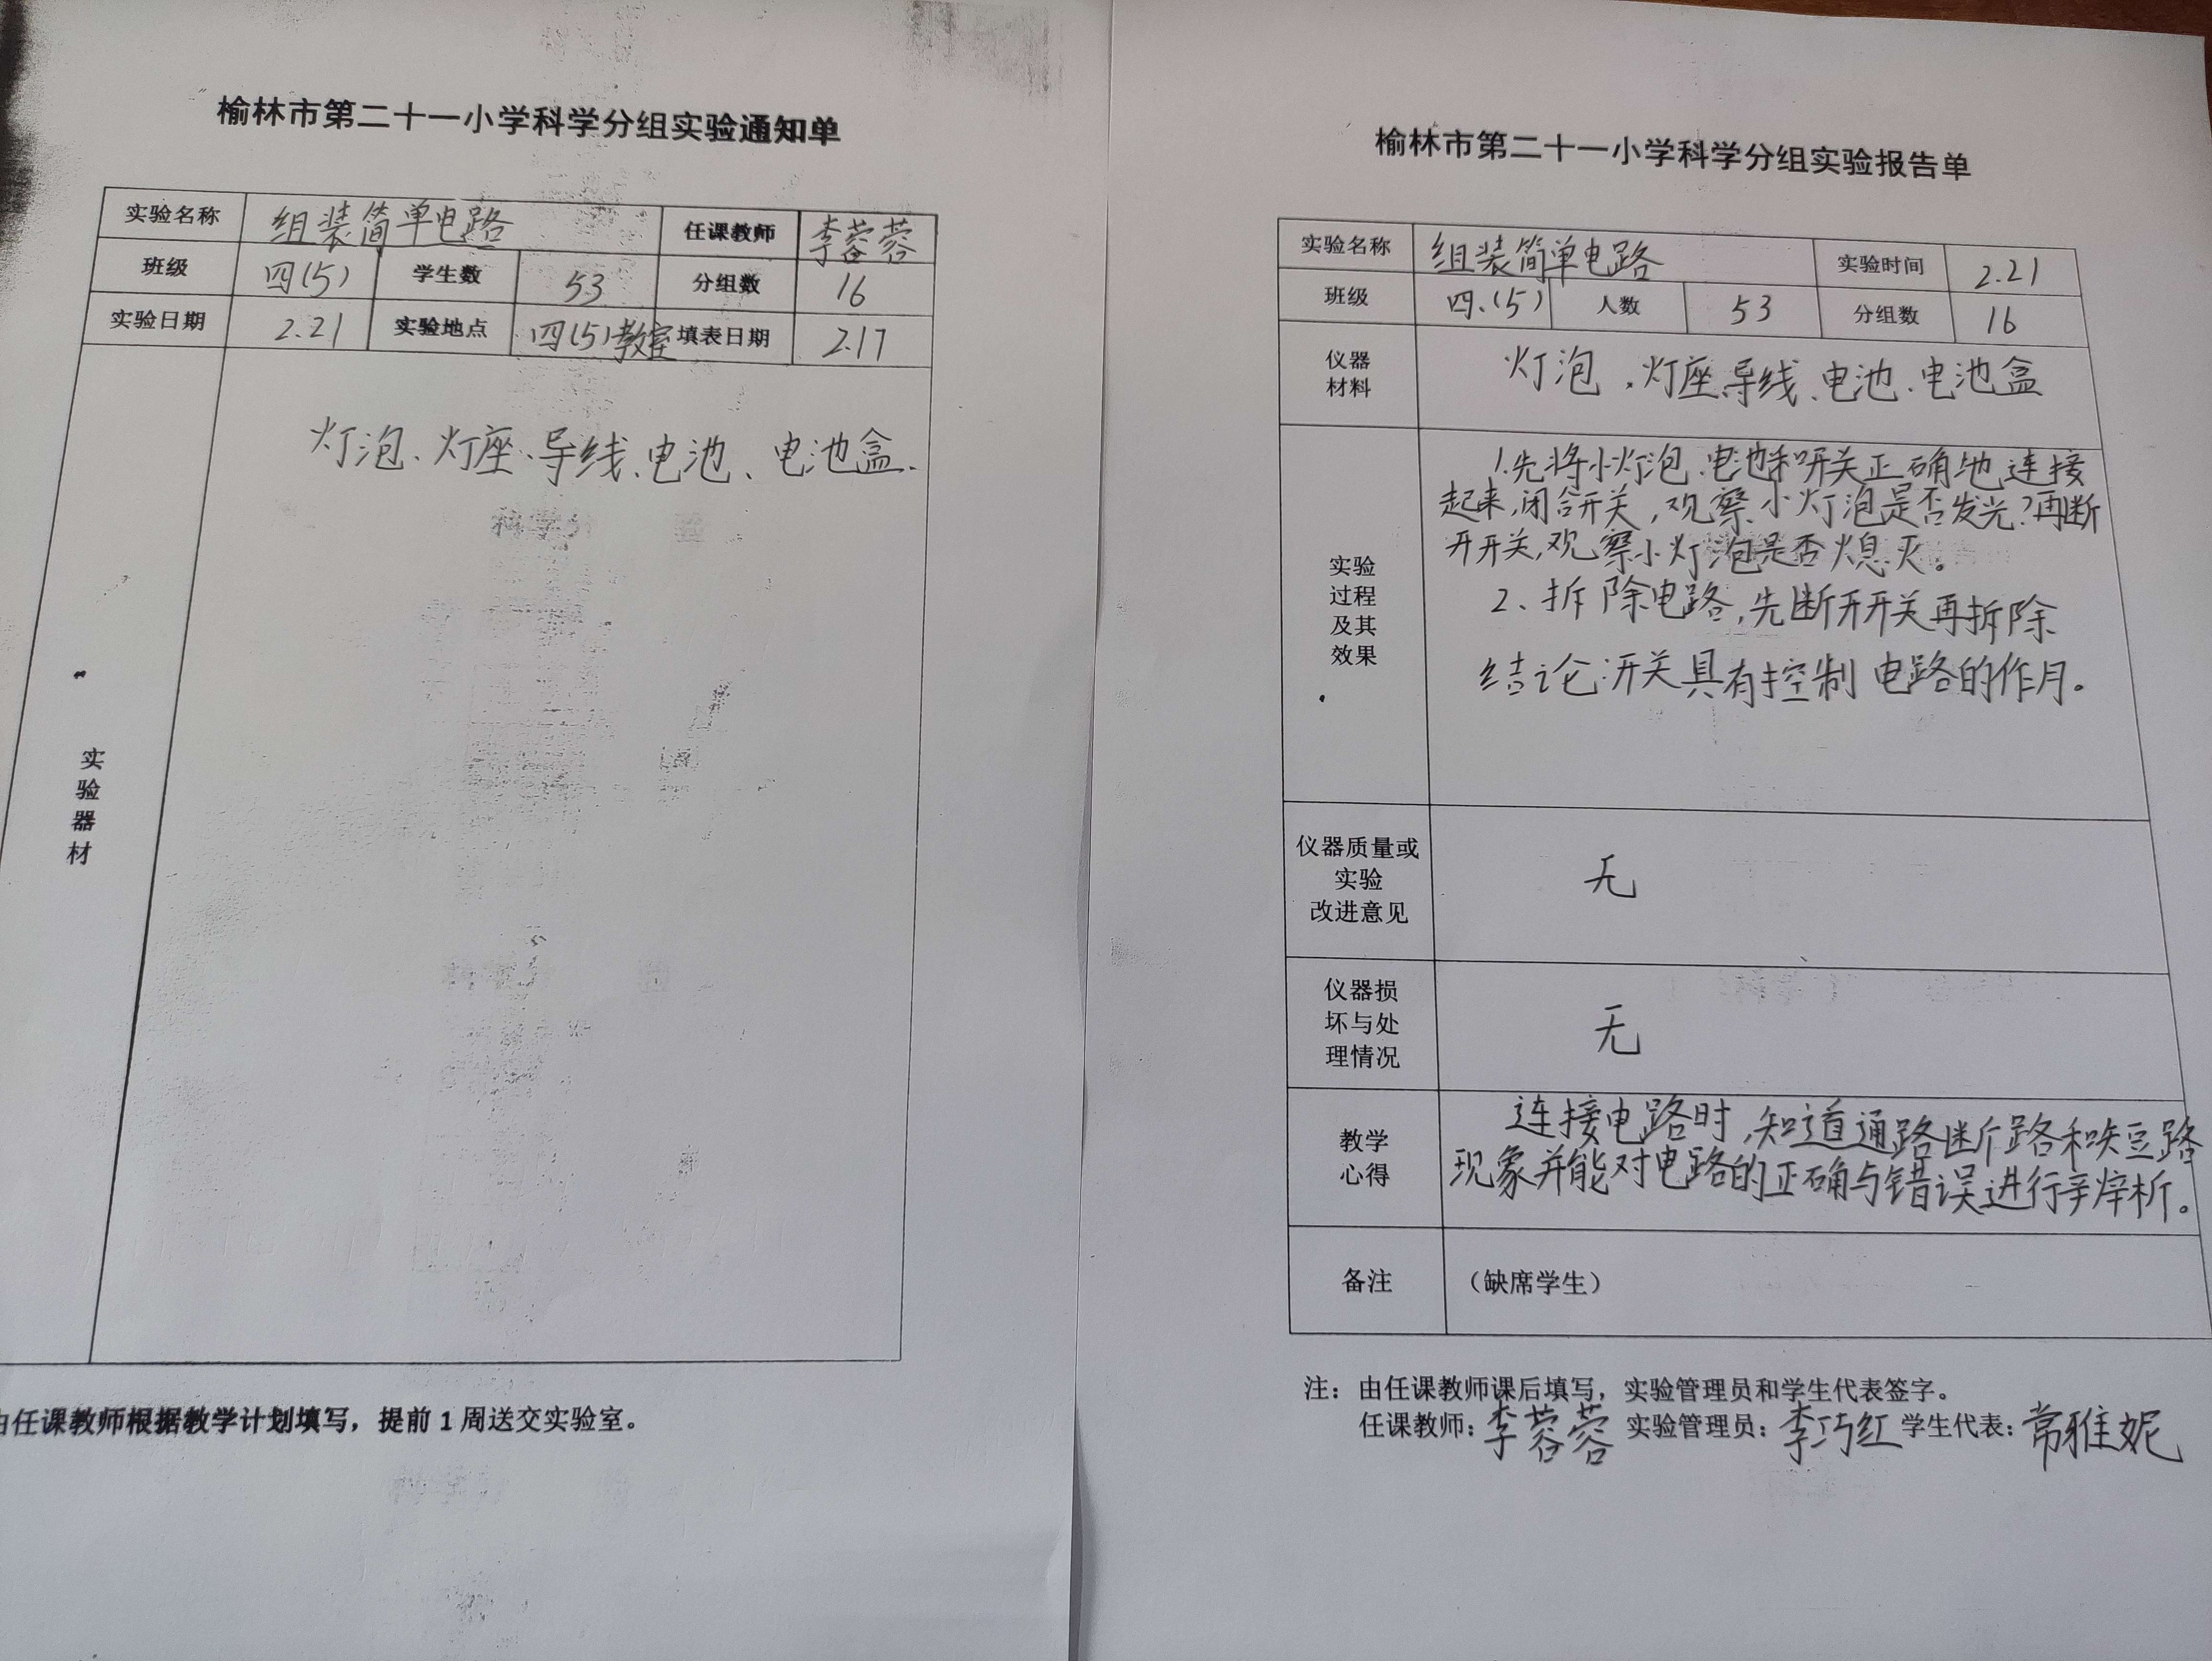 榆林市第二十一小学科学分组实验通知单
实验名称 组装简单电路 任课教师 李蓉蓉
班级 四(5) 学生数 53 分组数 16
实验日期 2.21 实验地点 四(5)教室 填表日期 2.17
实验器材
灯泡、灯座、导线、电池、电池盒、
由任课教师根据教学计划填写，提前1周送交实验室。
榆林市第二十一小学科学分组实验报告单
实验名称 组装简单电路 实验时间 2.21
班级 四.(5) 人数 53 分组数 16
仪器
材料
灯泡、灯座、导线、电池、电池盒
实验
过程
及其
效果
1.先将小灯泡、电池和开关正确地连接
起来,闭合开关,观察小灯泡是否发光?再断
开开关,观察小灯泡是否熄灭。
2、拆除电路,先断开开关再拆除
结论:开关具有控制电路的作用。
仪器质量或
实验
改进意见
无
仪器损
坏与处
理情况
无
教学
心得
连接电路时,知道通路断路和短路
现象并能对电路的正确与错误进行辨析。
备注 （缺席学生）
注：由任课教师课后填写，实验管理员和学生代表签字。
任课教师：李蓉蓉 实验管理员：李巧红 学生代表：常雅妮